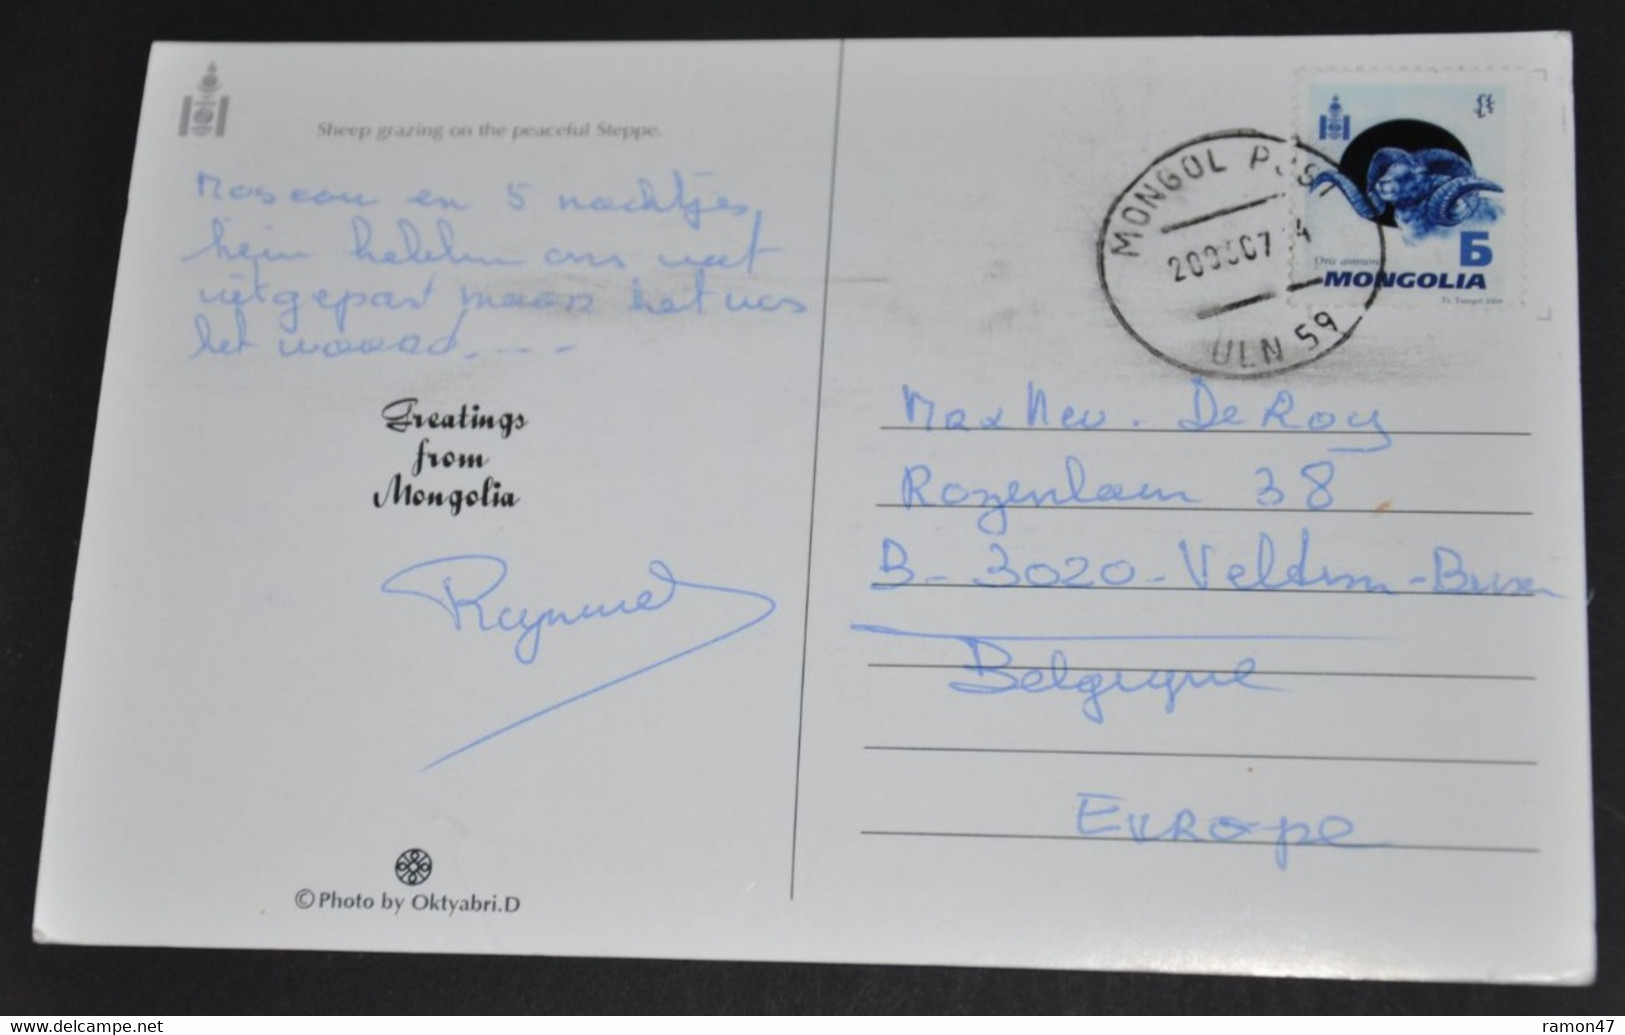 Sheep grazing on the peaceful Steppe.
Moscou en 5 nachtjes
hebben ons wat
uitgeput maar het was
het waard. - - -
Greatings
from
Mongolia
Raymond
© Photo by Oktyabri.D
MONGOL POST
ULN 59
Б
Ovis ammon
MONGOLIA
Max Neu. De Roy
Rozenlaan 38
B-3020-Veltem-
Belgique
Europe
www.delcampe.net
ramon47